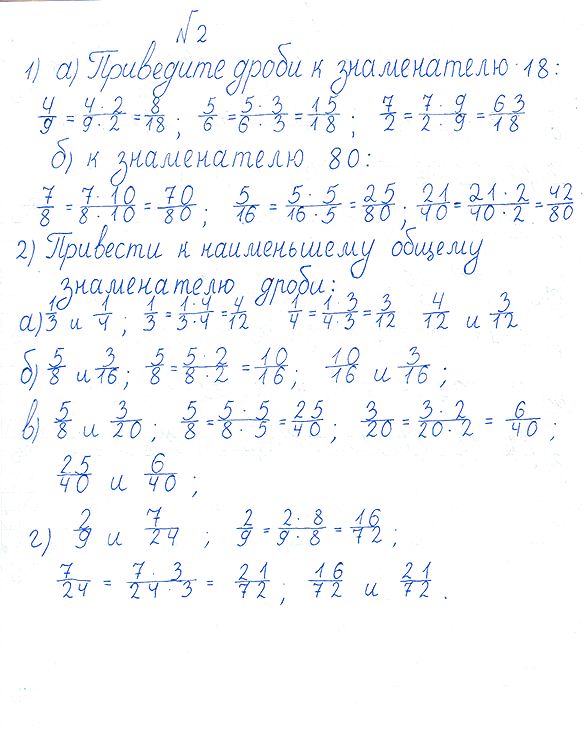 №2
1) а) Приведите дроби к знаменателю 18:
4/9 = 4·2/9·2 = 8/18; 5/6 = 5·3/6·3 = 15/18; 7/2 = 7·9/2·9 = 63/18
б) к знаменателю 80:
7/8 = 7·10/8·10 = 70/80; 5/16 = 5·5/16·5 = 25/80; 21/40 = 21·2/40·2 = 42/80.
2) Привести к наименьшему общему
знаменателю дроби:
а) 1/3 и 1/4; 1/3 = 1·4/3·4 = 4/12 1/4 = 1·3/4·3 = 3/12 4/12 и 3/12
б) 5/8 и 3/16; 5/8 = 5·2/8·2 = 10/16; 10/16 и 3/16;
в) 5/8 и 3/20; 5/8 = 5·5/8·5 = 25/40; 3/20 = 3·2/20·2 = 6/40;
25/40 и 6/40;
г) 2/9 и 7/24; 2/9 = 2·8/9·8 = 16/72;
7/24 = 7·3/24·3 = 21/72; 16/72 и 21/72.